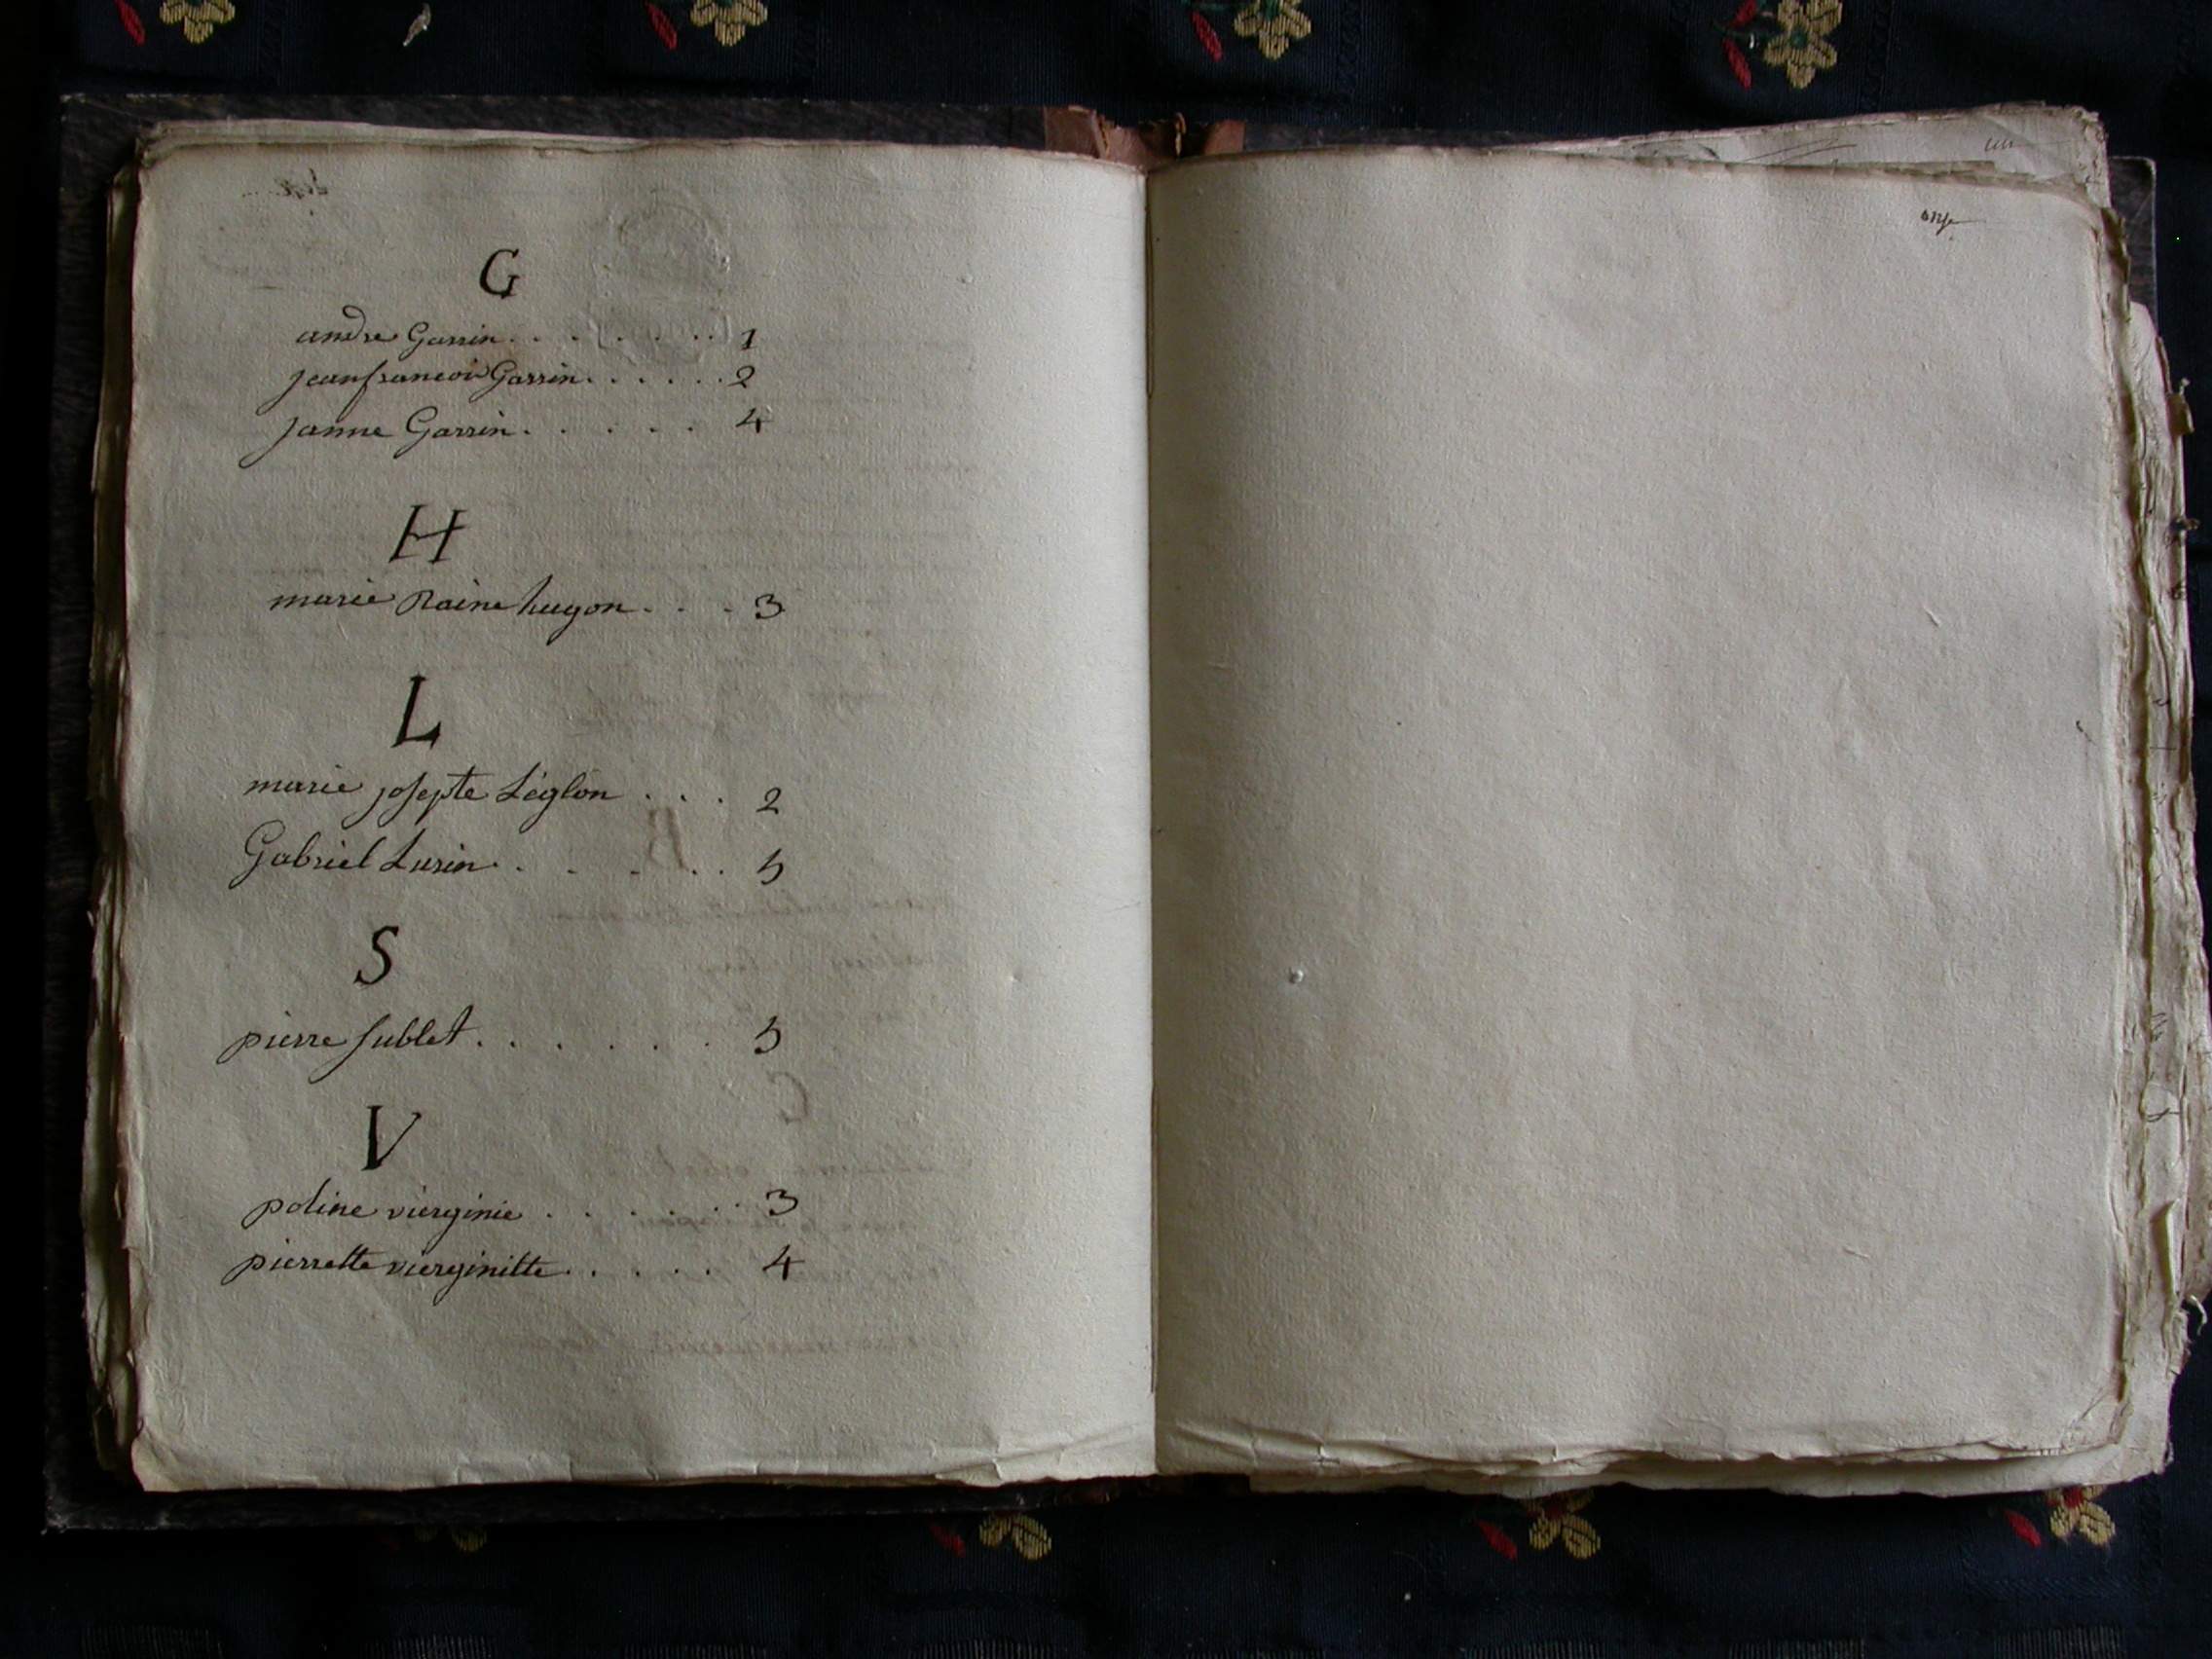 G
andre Garrin . . . . . . . . 1
jeanfrancois Garrin . . . . . . 2
janne Garrin . . . . . 4
H
marie Raine hugon . . . 3
L
marie josepte Léglon . . . 2
Gabriel Lurin . . . . . . 5
S
pierre sublet . . . . . . . 5
V
poline vierginie . . . . . . 3
pierrette vierginitte . . . . . 4
onze